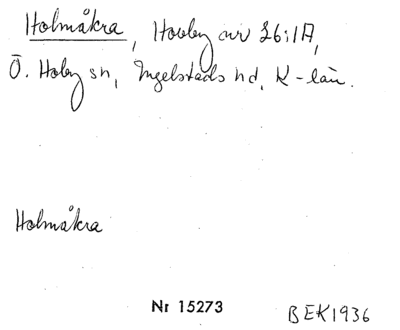 Holmåkra, Hovby nr 26:1A,
Ö. Hoby sn, Ingelstads hd, K-län.
Holmåkra
Nr 15273
BEK1936